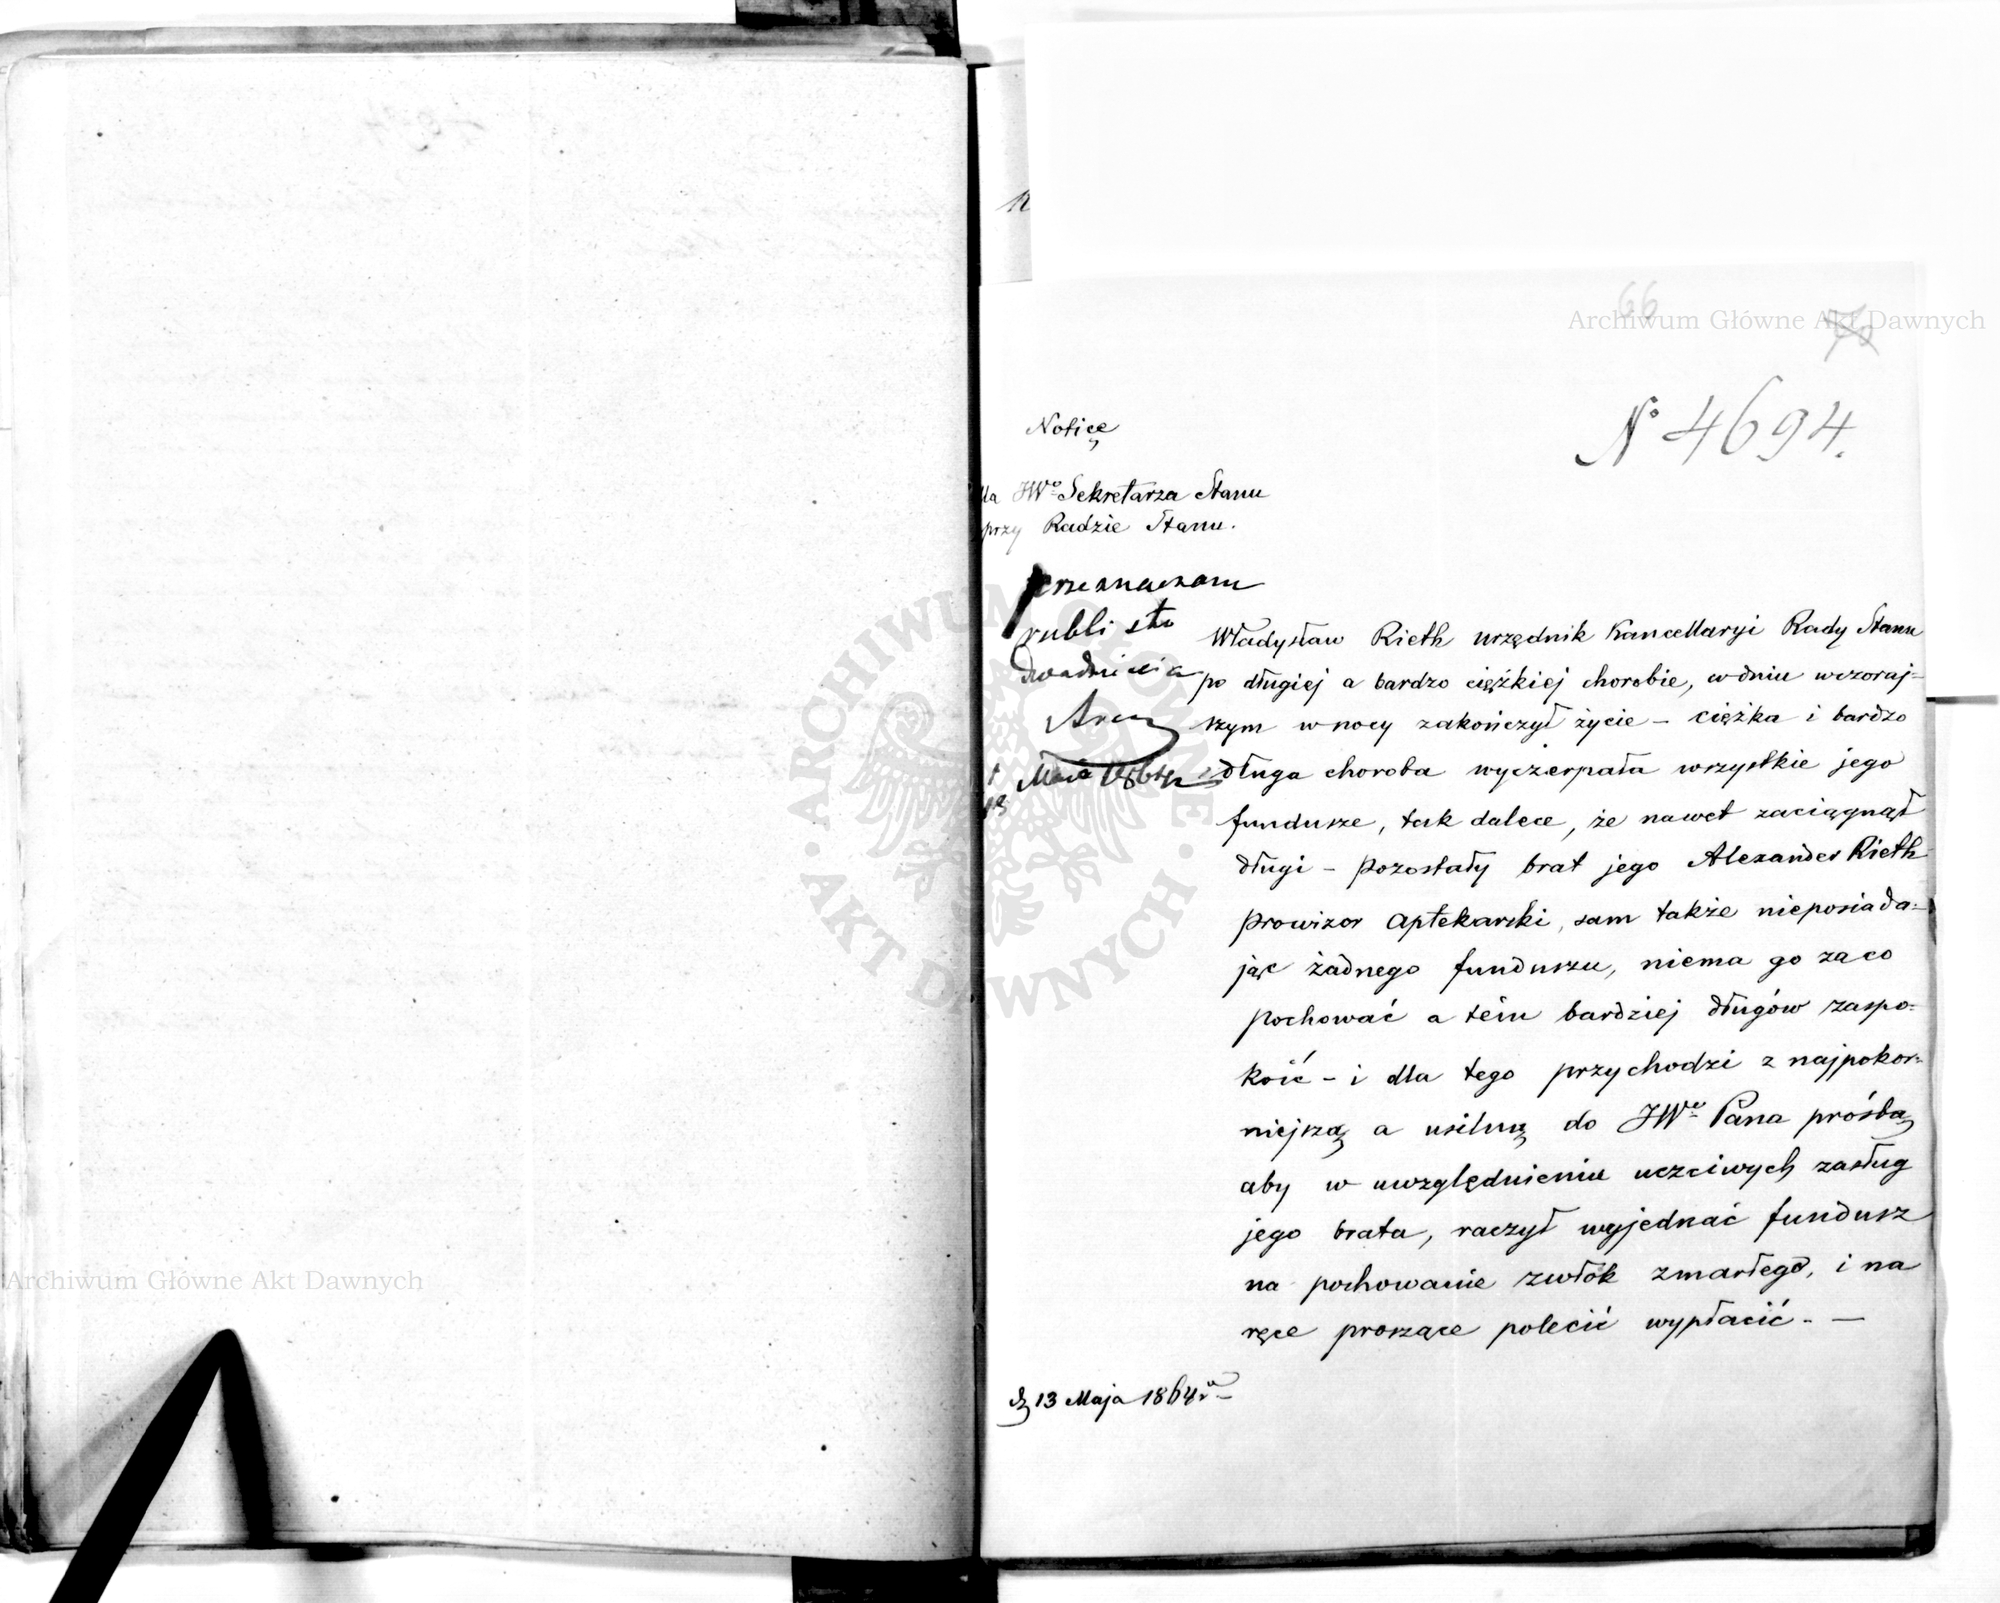 66
Nº 4694.
Noticę
dla JWº Sekretarza Stanu
przy Radzie Stanu.
przeznaczam
rubli sto
dwadzieścia
Maja 1864 r
Władysław Rieth urzędnik Kancellaryi Rady Stanu
po długiej a bardzo ciężkiej chorobie, w dniu wczoraj-
szym w nocy zakończył życie – ciężka i bardzo
długa choroba wyczerpała wszystkie jego
fundusze, tak dalece, że nawet zaciągnął
długi – pozostały brat jego Alexander Rieth
prowizor aptekarski, sam także nieposiada-
jąc żadnego funduszu, niema go za co
pochować a tém bardziej długów zaspo-
koić – i dla tego przychodzi z najpokor-
niejszą a usilną do JWº Pana prośbą
aby w uwzględnieniu uczciwych zasług
jego brata, raczył wyjednać fundusz
na pochowanie zwłok zmarłego, i na
ręce proszące polecić wypłacić. –
d. 13 Maja 1864 r.
Archiwum Główne Akt Dawnych
Archiwum Główne Akt Dawnych
ARCHIWUM GŁÓWNE · AKT DAWNYCH ·